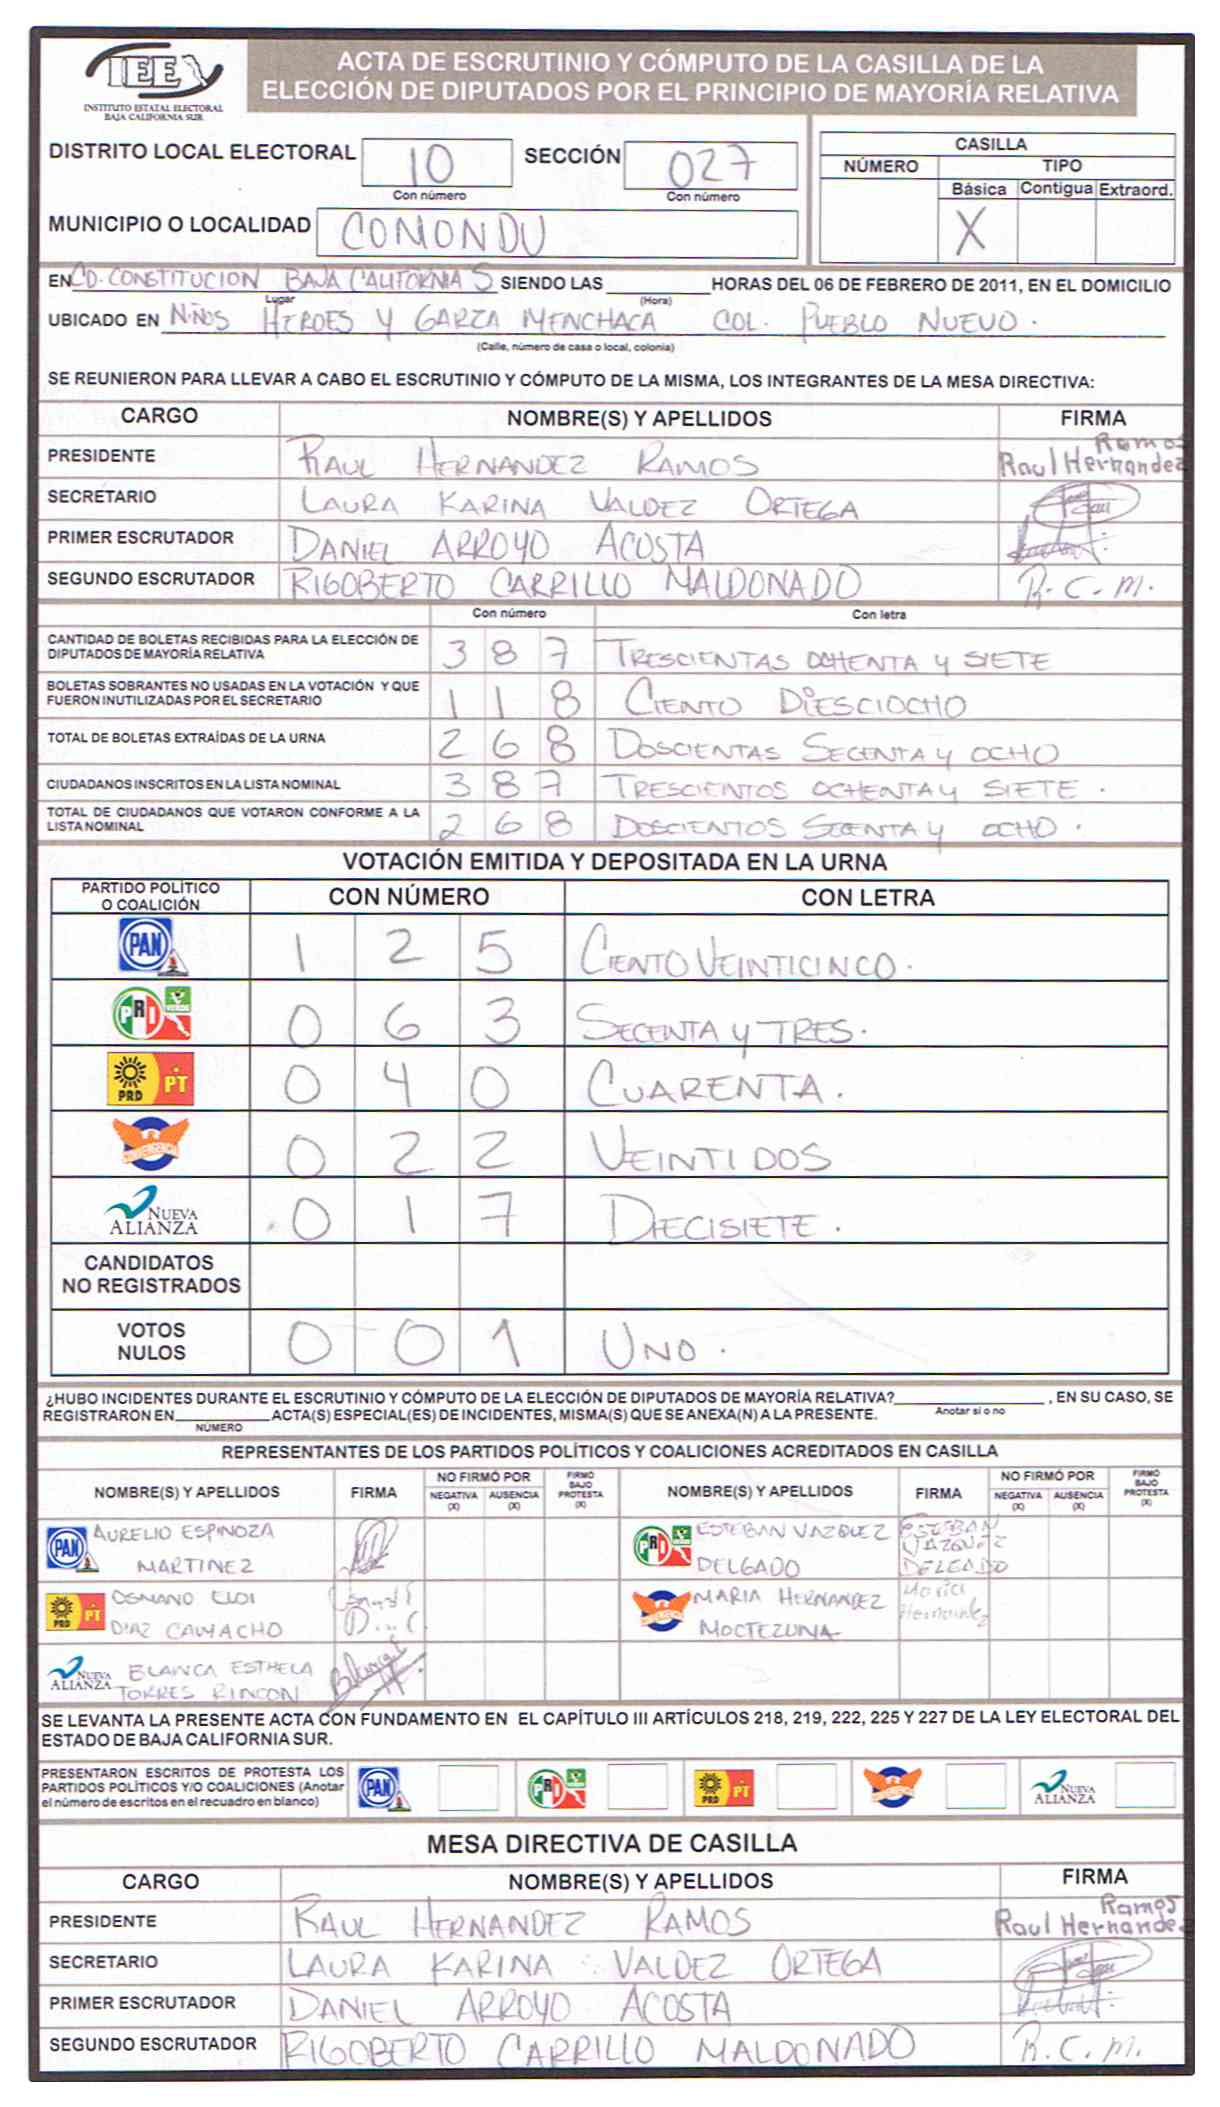 IEE
INSTITUTO ESTATAL ELECTORAL
BAJA CALIFORNIA SUR
ACTA DE ESCRUTINIO Y CÓMPUTO DE LA CASILLA DE LA
ELECCIÓN DE DIPUTADOS POR EL PRINCIPIO DE MAYORÍA RELATIVA
DISTRITO LOCAL ELECTORAL 10 SECCIÓN 027
Con número Con número
MUNICIPIO O LOCALIDAD COMONDU
CASILLA
NÚMERO TIPO
Básica Contigua Extraord.
X
EN CD. CONSTITUCION BAJA CALIFORNIA S SIENDO LAS HORAS DEL 06 DE FEBRERO DE 2011, EN EL DOMICILIO
Lugar (Hora)
UBICADO EN NIÑOS HEROES Y GARZA MENCHACA COL. PUEBLO NUEVO.
(Calle, número de casa o local, colonia)
SE REUNIERON PARA LLEVAR A CABO EL ESCRUTINIO Y CÓMPUTO DE LA MISMA, LOS INTEGRANTES DE LA MESA DIRECTIVA:
CARGO NOMBRE(S) Y APELLIDOS FIRMA
PRESIDENTE RAUL HERNANDEZ RAMOS Ramos
Raul Hernandez
SECRETARIO LAURA KARINA VALDEZ ORTEGA
PRIMER ESCRUTADOR DANIEL ARROYO ACOSTA
SEGUNDO ESCRUTADOR RIGOBERTO CARRILLO MALDONADO R.C.M.
Con número Con letra
CANTIDAD DE BOLETAS RECIBIDAS PARA LA ELECCIÓN DE
DIPUTADOS DE MAYORÍA RELATIVA 3 8 7 TRESCIENTAS OCHENTA Y SIETE
BOLETAS SOBRANTES NO USADAS EN LA VOTACIÓN Y QUE
FUERON INUTILIZADAS POR EL SECRETARIO 1 1 8 CIENTO DIESCIOCHO
TOTAL DE BOLETAS EXTRAÍDAS DE LA URNA 2 6 8 DOSCIENTAS SECENTA Y OCHO
CIUDADANOS INSCRITOS EN LA LISTA NOMINAL 3 8 7 TRESCIENTOS OCHENTA Y SIETE.
TOTAL DE CIUDADANOS QUE VOTARON CONFORME A LA
LISTA NOMINAL 2 6 8 DOSCIENTOS SECENTA Y OCHO.
VOTACIÓN EMITIDA Y DEPOSITADA EN LA URNA
PARTIDO POLÍTICO
O COALICIÓN CON NÚMERO CON LETRA
PAN 1 2 5 CIENTO VEINTICINCO.
PRI VERDE 0 6 3 SECENTA Y TRES.
PRD PT 0 4 0 CUARENTA.
CONVERGENCIA 0 2 2 VEINTIDOS
NUEVA ALIANZA 0 1 7 DIECISIETE.
CANDIDATOS
NO REGISTRADOS
VOTOS
NULOS 0 0 1 UNO.
¿HUBO INCIDENTES DURANTE EL ESCRUTINIO Y CÓMPUTO DE LA ELECCIÓN DE DIPUTADOS DE MAYORÍA RELATIVA? , EN SU CASO, SE
Anotar sí o no
REGISTRARON EN ACTA(S) ESPECIAL(ES) DE INCIDENTES, MISMA(S) QUE SE ANEXA(N) A LA PRESENTE.
NÚMERO
REPRESENTANTES DE LOS PARTIDOS POLÍTICOS Y COALICIONES ACREDITADOS EN CASILLA
NOMBRE(S) Y APELLIDOS FIRMA NO FIRMÓ POR NEGATIVA (X) AUSENCIA (X) FIRMÓ BAJO PROTESTA (X) NOMBRE(S) Y APELLIDOS FIRMA NO FIRMÓ POR NEGATIVA (X) AUSENCIA (X) FIRMÓ BAJO PROTESTA (X)
PAN AURELIO ESPINOZA
MARTINEZ
PRI VERDE ESTEBAN VAZQUEZ
DELGADO
ESTEBAN
VAZQUEZ
DELGADO
PRD PT OSMANO ELOI
DIAZ CAMACHO
CONVERGENCIA MARIA HERNANDEZ
MOCTEZUNA
Maria
Hernandez
NUEVA ALIANZA BLANCA ESTHELA
TORRES RINCON
SE LEVANTA LA PRESENTE ACTA CON FUNDAMENTO EN EL CAPÍTULO III ARTÍCULOS 218, 219, 222, 225 Y 227 DE LA LEY ELECTORAL DEL
ESTADO DE BAJA CALIFORNIA SUR.
PRESENTARON ESCRITOS DE PROTESTA LOS
PARTIDOS POLÍTICOS Y/O COALICIONES (Anotar
el número de escritos en el recuadro en blanco)
PAN PRI VERDE PRD PT CONVERGENCIA NUEVA ALIANZA
MESA DIRECTIVA DE CASILLA
CARGO NOMBRE(S) Y APELLIDOS FIRMA
PRESIDENTE RAUL HERNANDEZ RAMOS Ramos
Raul Hernandez
SECRETARIO LAURA KARINA VALDEZ ORTEGA
PRIMER ESCRUTADOR DANIEL ARROYO ACOSTA
SEGUNDO ESCRUTADOR RIGOBERTO CARRILLO MALDONADO R.C.M.